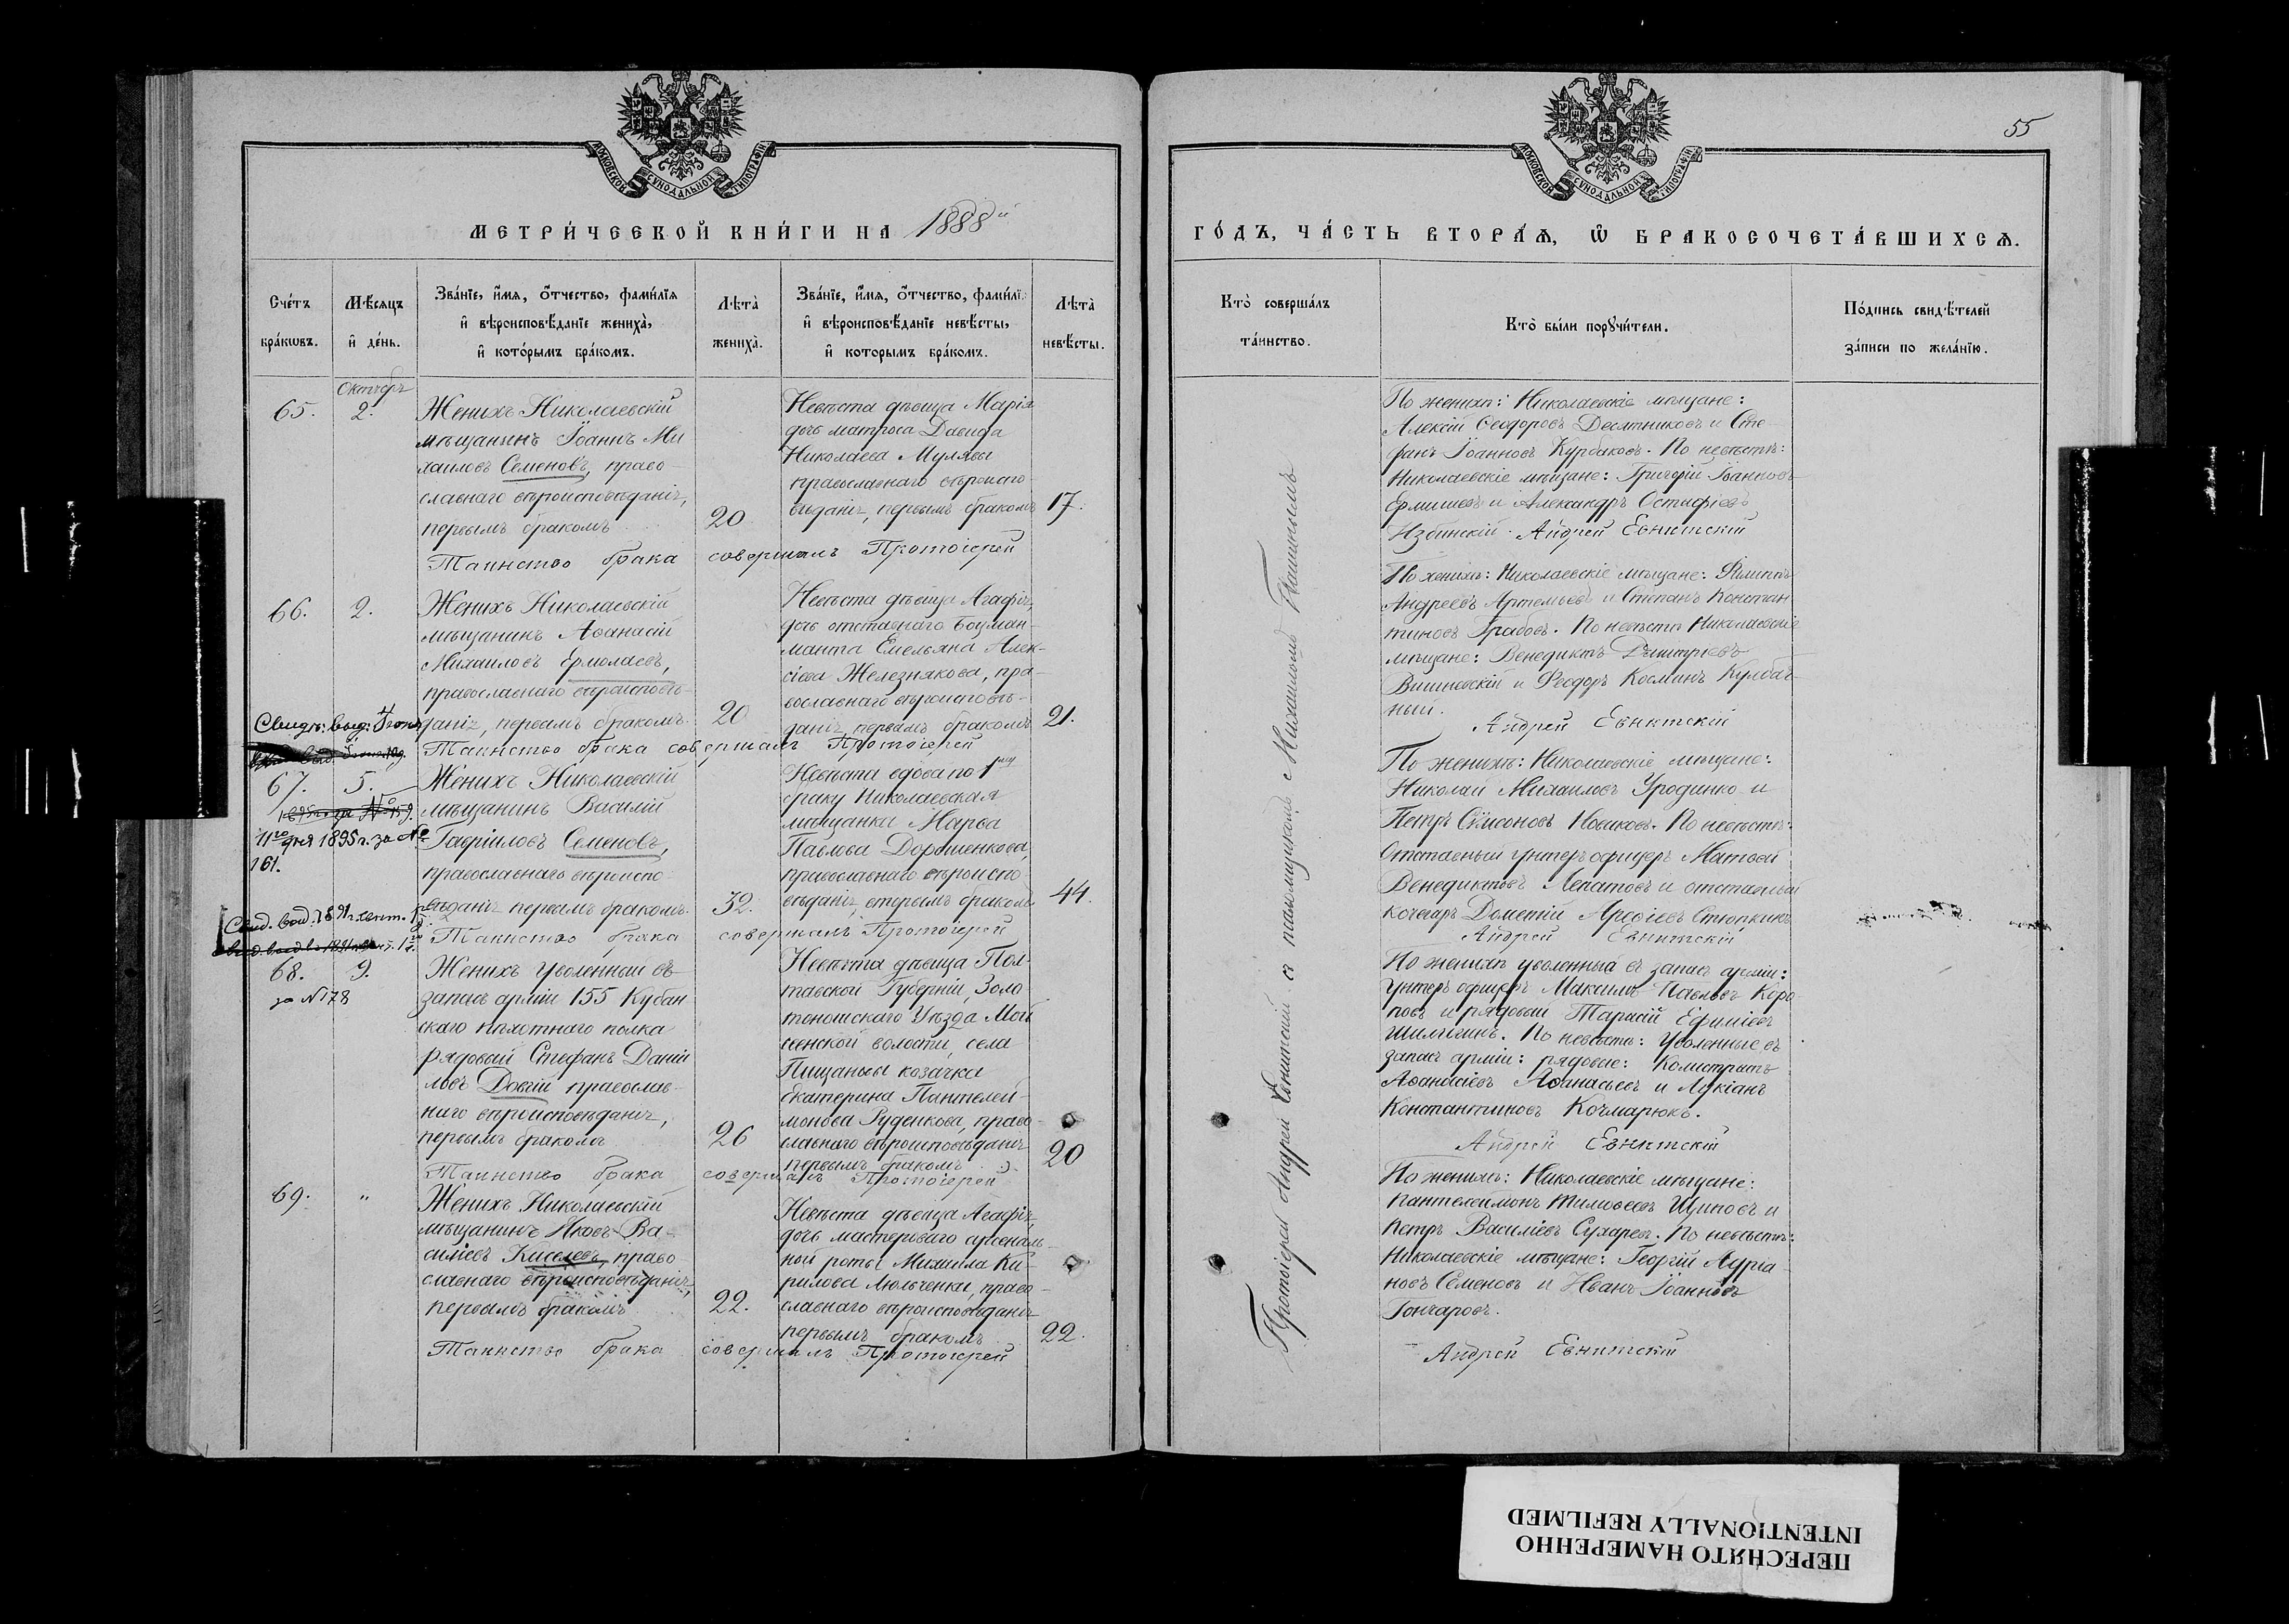 МОСКОВСКОЙ СУНОДАЛЬНОЙ ТИПОГРАФІИ
МЕТРИ́ЧЕСКОЙ КНИ́ГИ НА 1888й
Сче́тъ бра́кωвъ.
Мѣ́сяцъ и҆ де́нь.
Зва́нїе, и҆́мя, ѻ҆́тчество, фами́лїя
и҆ вѣроисповѣ́данїе жениха̀,
и҆ кото́рымъ бра́комъ.
Лѣта̀ жениха̀.
Зва́нїе, и҆́мя, ѻ҆́тчество, фами́лї
и҆ вѣроисповѣ́данїе невѣ́сты,
и҆ которымъ бра́комъ.
Лѣта̀ невѣ́сты.
65.
Октябрь
2.
Женихъ Николаевскій
мѣщанинъ Іоаннъ Ми
хаиловъ Семеновъ, право-
славнаго вѣроисповѣданія,
первымъ бракомъ
20
Невѣста дѣвица Марія
дочь матроса Давида
Николаева Мулявы
православнаго вѣроиспо-
вѣданія, первымъ бракомъ
17.
Таинство брака совершалъ Протоіерей
66.
2.
Женихъ Николаевскій
мѣщанинъ Аѳанасій
Михаиловъ Ермолаевъ,
православнаго вѣроисповѣ-
данія, первымъ бракомъ.
20
Невѣста дѣвица Агафія,
дочь отставнаго Боцман-
манта Емельяна Алек-
сіева Железнякова, пра-
вославнаго вѣроисповѣ-
данія, первымъ бракомъ
21.
Таинство брака совершалъ Протоіерей
67.
5.
11го дня 1895 г. за №
161.
Женихъ Николаевскій
мѣщанинъ Василій
Гавріиловъ Семеновъ,
православнаго вѣроиспо-
вѣданія первымъ бракомъ.
32.
Невѣста вдова по 1му
браку Николаевская
мѣщанка Марѳа
Павлова Дорошенкова,
православнаго вѣроиспо
вѣданія, вторымъ бракомъ
44.
Таинство брака совершалъ Протоіерей
68.
9.
за №178
Женихъ уволенный въ
запасъ арміи 155 Кубан
скаго пѣхотнаго полка
рядовой Стефанъ Даніи
ловъ Довгій православ-
наго вѣроисповѣданія,
первымъ бракомъ
26
Невѣста дѣвица Пол-
тавской Губерніи, Золо
тоношскаго Уѣзда Мой
сенской волости, села
Пищаньы козачка
Екатерина Пантелей-
монова Руденкова, право-
славнаго вѣроисповѣданія
первымъ бракомъ
20
Таинство брака совершалъ Протоіерей
69.
"
Женихъ Николаевскій
мѣщанинъ Яковъ Ва-
силіевъ Киселевъ, право
славнаго вѣроисповѣданія,
первымъ бракомъ
22.
Невѣста дѣвица Агафія,
дочь мастероваго арсеналь-
ной роты Михаила Ки-
рилова Мольченки, право-
славнаго вѣроисповѣданія
первымъ бракомъ
22.
Таинство брака совершалъ Протоіерей
55
МОСКОВСКОЙ СУНОДАЛЬНОЙ ТИПОГРАФІИ
ГО́ДЪ, ЧА́СТЬ ВТОРА́Ѧ, Ѽ БРАКОСОЧЕТА́ВШИХСѦ.
Кто̀ соверша́лъ
та́инство.
Кто̀ бы́ли порꙋчи́тели.
По́дпись свидѣ́телей
за́писи по жела́нїю.
Протоіерей Андрей Евнитскій съ псаломщикомъ Михаиломъ
По женихѣ: Николаевскіе мѣщане:
Алексій Ѳеодоровъ Десятниковъ и Сте-
фанъ Іоанновъ Курбаковъ. По невѣстѣ:
Николаевскіе мѣщане: Григорій Іоанновъ
Ермишевъ и Александръ Остафіевъ
Избинскій. Андрей Евнитскій
По женихѣ: Николаевскіе мѣщане: Филиппъ
Андреевъ Артемьевъ и Степанъ Констан
тиновъ Грабовъ. По невѣстѣ Николаевскіе
мѣщане: Венедиктъ Димитріевъ
Вишневскій и Ѳеодоръ Косминъ Кулбач-
ный.
Андрей Евнитскій
По женихѣ: Николаевскіе мѣщане:
Николай Михаиловъ Уродинко и
Петръ Сѵмсоновъ Новиковъ. По невѣстѣ:
Отставный унтеръ офицеръ Матвей
Венедиктовъ Лепатовъ и отставный
кочегаръ Дометій Арефіевъ Стюпкинъ
Андрей Евнитскій
По женихѣ уволенные въ запасъ арміи:
Унтеръ офицеръ Максимъ Павловъ Коро-
повъ и рядовый Тарасій Ефиміевъ
Шиляшнъ. По невѣстѣ: Уволенные въ
запасъ арміи: рядовые: Калистратъ
Аѳанасіевъ Аѳанасьевъ и Лукіанъ
Константиновъ Кочмарюкъ.
Андрей Евнитскій
По женихѣ: Николаевскіе мѣщане:
Пантелеимонъ Тимоѳеевъ Щиповъ и
Петръ Василіевъ Сухаревъ. По невѣстѣ:
Николаевскіе мѣщане: Георгій Авріа
новъ Семеновъ и Иванъ Іоанновъ
Гончаровъ.
Андрей Евнитскій
ПЕРЕСНЯТО НАМЕРЕННО
INTENTIONALLY REFILMED